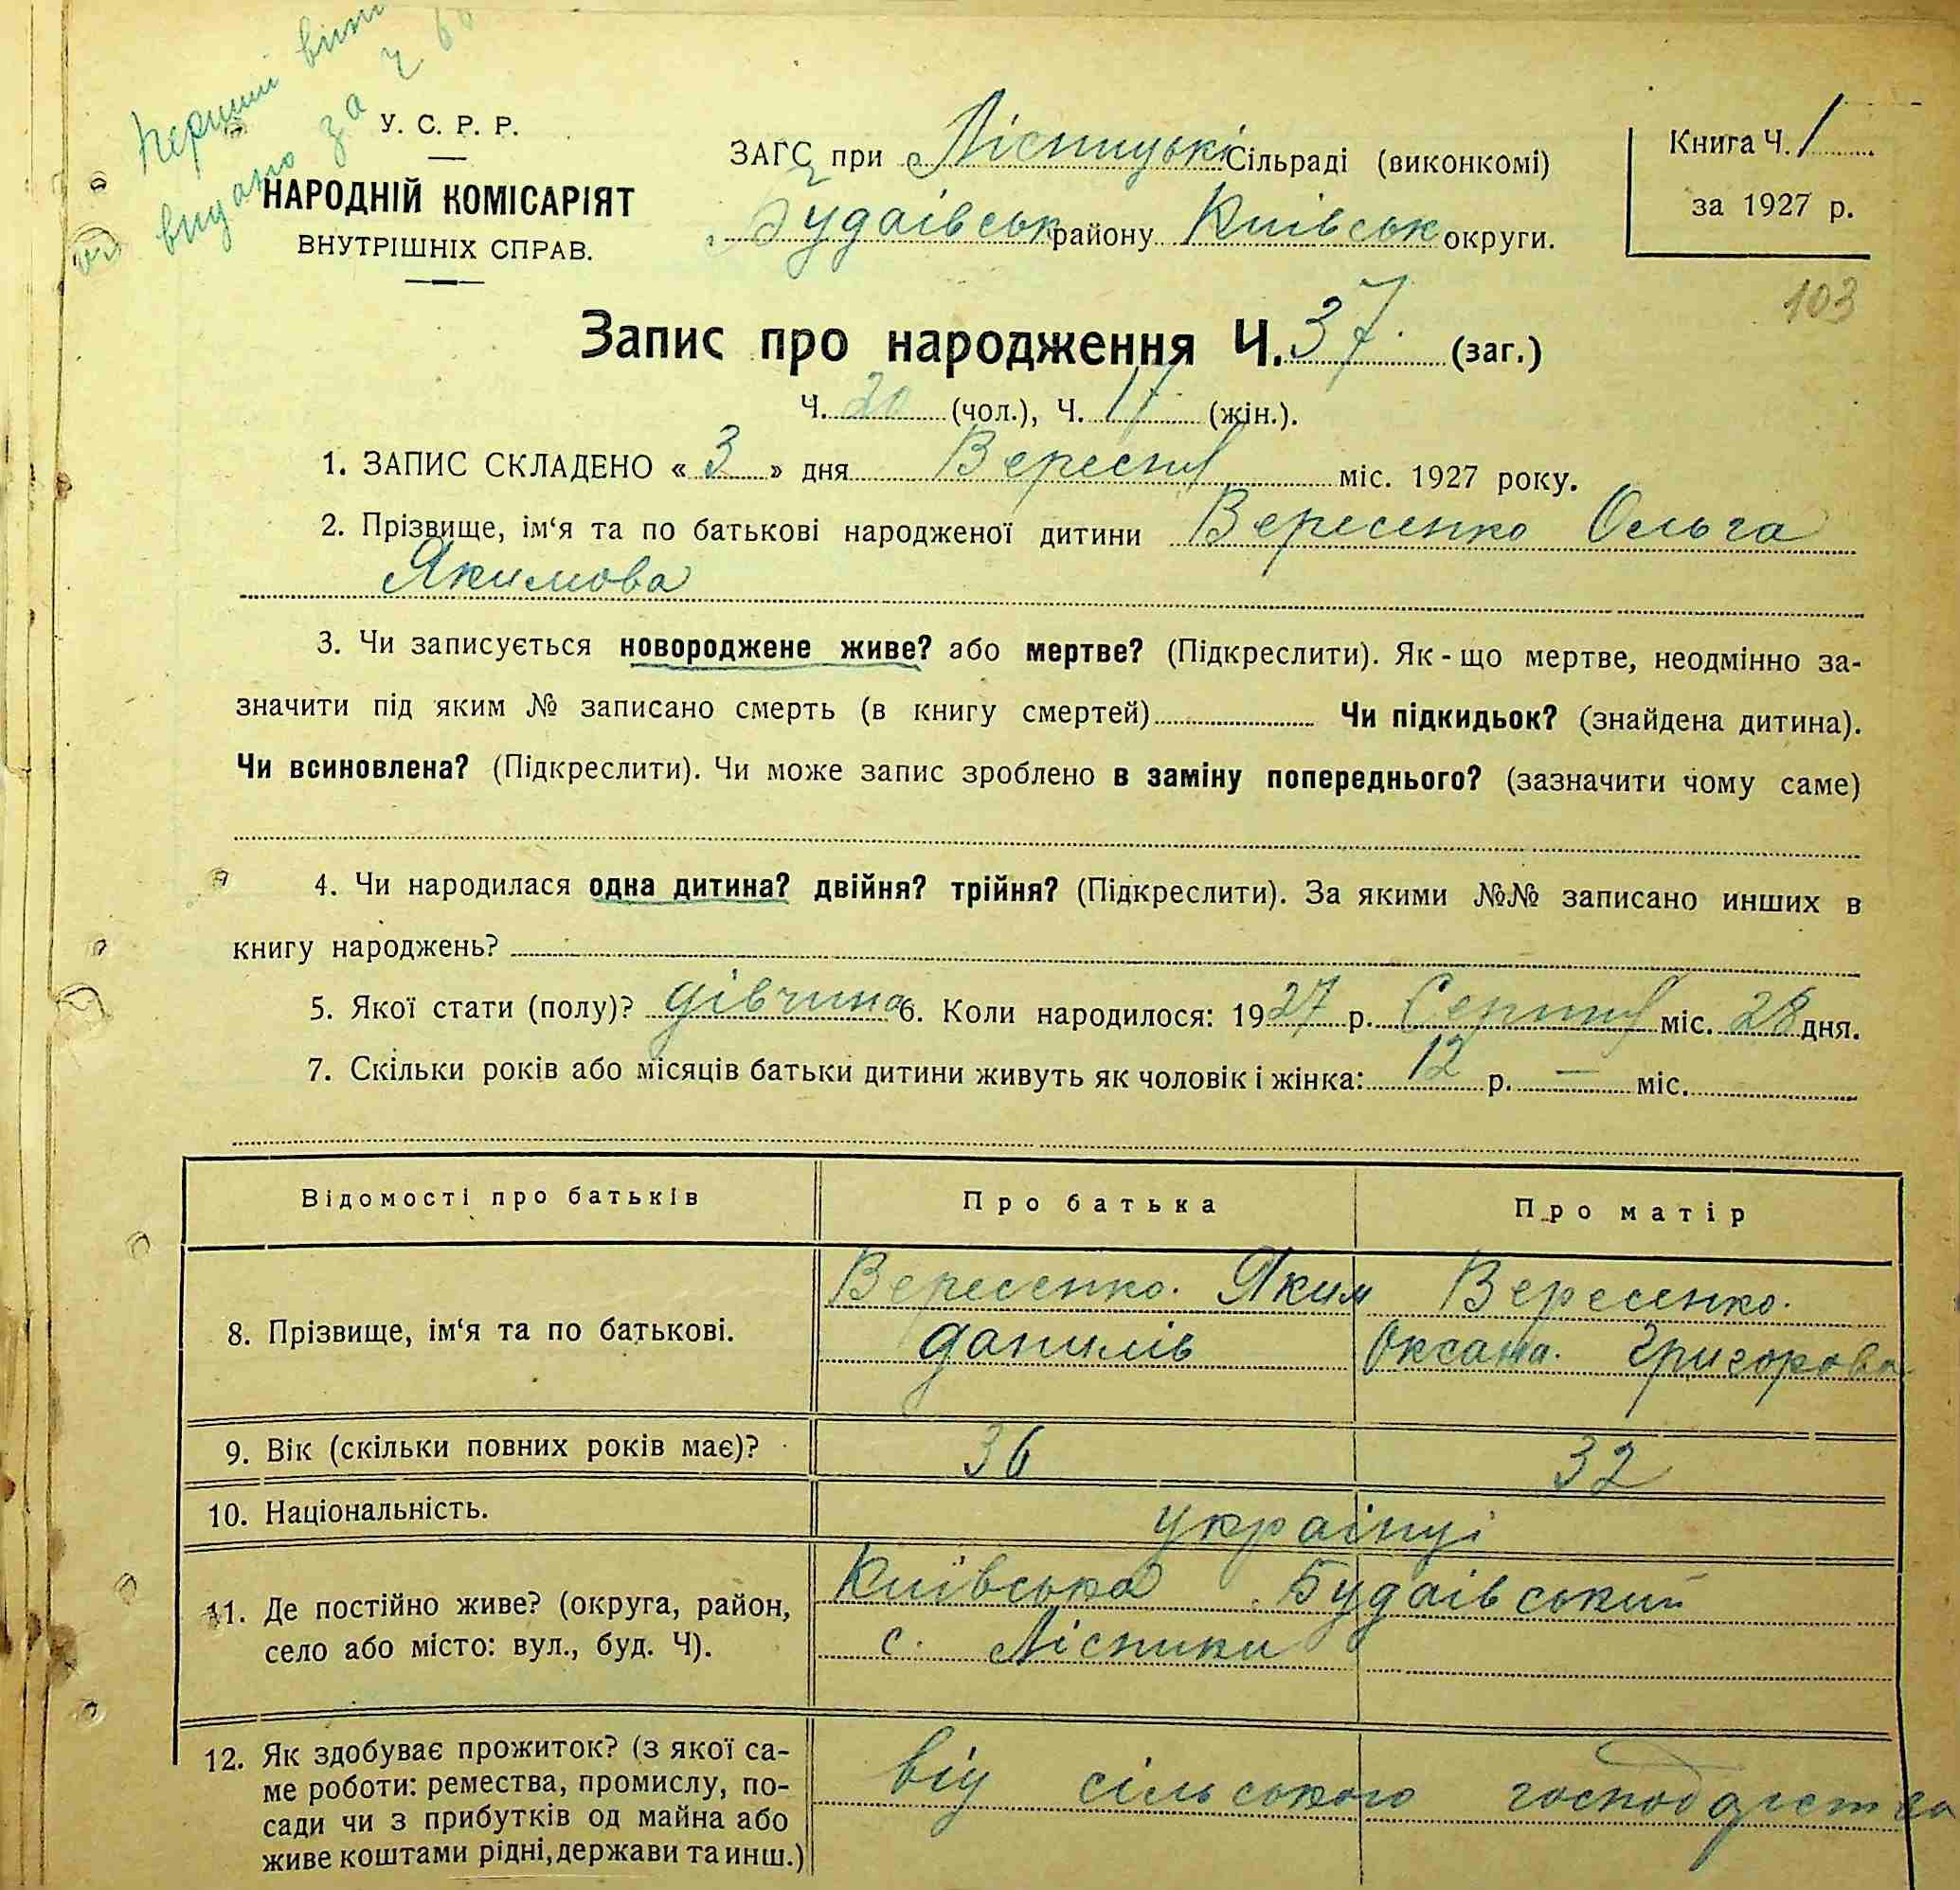 Перший
видано за ч
У. С. Р. Р.
НАРОДНІЙ КОМІСАРІЯТ
ВНУТРІШНІХ СПРАВ.
ЗАГС при Лісницькі Сільраді (виконкомі)
Будаівськ району Київськ округи.
Книга Ч. 1
за 1927 р.
103
Запис про народження Ч. 37. (заг.)
Ч. 20 (чол.), Ч. 17 (жін.).
1. ЗАПИС СКЛАДЕНО « 3 » дня Вересня міс. 1927 року.
2. Прізвище, ім‘я та по батькові народженої дитини Вересенко Ольга
Якимова
3. Чи записується новороджене живе? або мертве? (Підкреслити). Як-що мертве, неодмінно за-
значити під яким № записано смерть (в книгу смертей) Чи підкидьок? (знайдена дитина).
Чи всиновлена? (Підкреслити). Чи може запис зроблено в заміну попереднього? (зазначити чому саме)
4. Чи народилася одна дитина? двійня? трійня? (Підкреслити). За якими №№ записано инших в
книгу народжень?
5. Якої стати (полу)? дівчина 6. Коли народилося: 1927 р. Серпня міс. 28 дня.
7. Скільки років або місяців батьки дитини живуть як чоловік і жінка: 12 р. — міс.
Відомості про батьків Про батька Про матір
8. Прізвище, ім‘я та по батькові.
Вересенко. Яким
данилів
Вересенко.
Оксана. Григорова
9. Вік (скільки повних років має)? 36 32
10. Національність. українці
11. Де постійно живе? (округа, район,
село або місто: вул., буд. Ч).
Київська Будаівський
с. Лісники
12. Як здобуває прожиток? (з якої са-
ме роботи: ремества, промислу, по-
сади чи з прибутків од майна або
живе коштами рідні, держави та инш.)
від сільського господарства